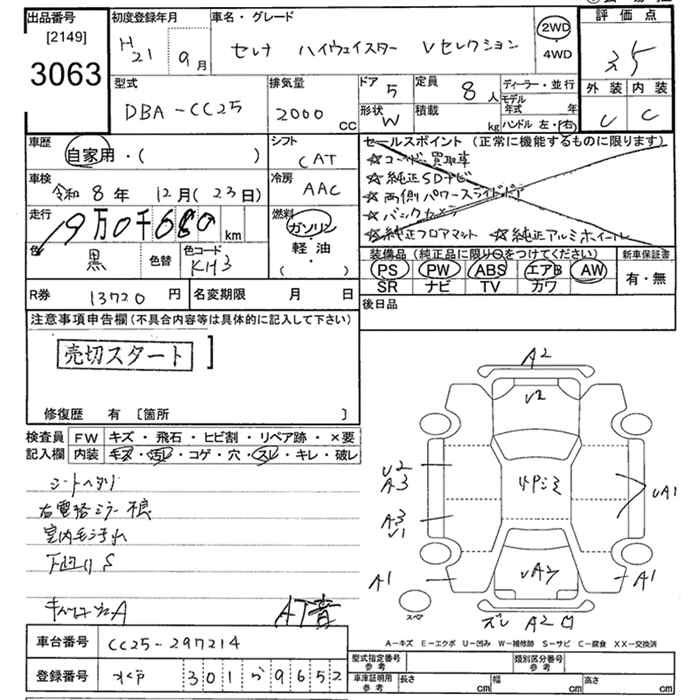 出品番号
[2149]
3063
初度登録年月
H21 9月
車名・グレード
セレナ ハイウェイスター Vセレクション
2WD
4WD
評価点
3.5
外装 内装
C
型式
DBA-CC25
排気量
2000 cc
ドア 5
形状 W
定員 8人
積載 kg
ディーラー・並行
モデル年式 年
ハンドル 左・右
車歴
自家用・( )
シフト
CAT
車検
令和8年12月(23日)
冷房
AAC
走行
9万0千680 km
燃料
ガソリン
軽・油
( )
色 黒 色替
色コード
KH3
セールスポイント(正常に機能するものに限ります)
☆純正SDナビ
☆両側パワースライドドア
☆バックカメラ
☆純正フロアマット ☆純正アルミホイール
装備品(純正品に限り○をつけてください)
PS PW ABS エアB AW
SR ナビ TV カワ
新車保証書
有・無
R券 13720円
名変期限 月 日
後日品
注意事項申告欄(不具合内容等は具体的に記入して下さい)
売切スタート
修復歴 有 [箇所 ]
検査員記入欄
FW キズ・飛石・ヒビ割・リペア跡・×要
内装 キズ・汚レ・コゲ・穴・スレ・キレ・破レ
シートヘタリ
右電格ミラー不良
室内毛汚れ
下回りS
AT青
A2
U2
U2
A3
A3
U1
A1
UA1
A1
スペア
A2
A-キズ E-エクボ U-凹み W-補修跡 S-サビ C-腐食 XX-交換済
車台番号 CC25-297214
登録番号 水戸 301 ち 9652
型式指定番号 参考
類別区分番号 参考
車庫証明用 参考
長さ cm 幅 cm 高さ cm